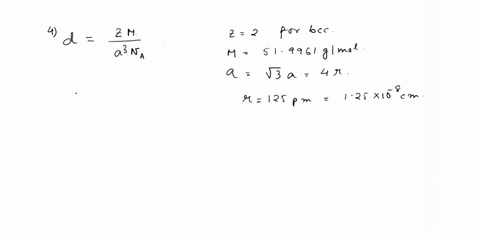 4) d = ZM / a³N_A
Z = 2 for bcc.
M = 51.9961 g/mol.
a = √3 a = 4r.
r = 125 pm = 1.25 × 10⁻⁸ cm.